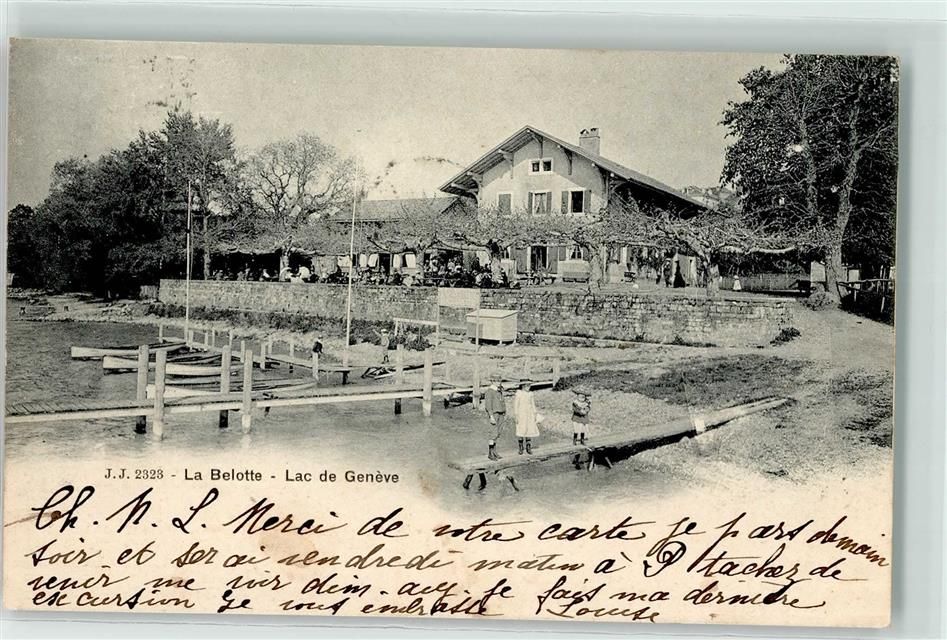 J.J. 2323 - La Belotte - Lac de Genève
Ch. N. L. Merci de votre carte je pars demain
soir et serai vendredi matin à P tachez de
venir me voir dim. auj. je fais ma dernière
excursion je vous embrasse Louise